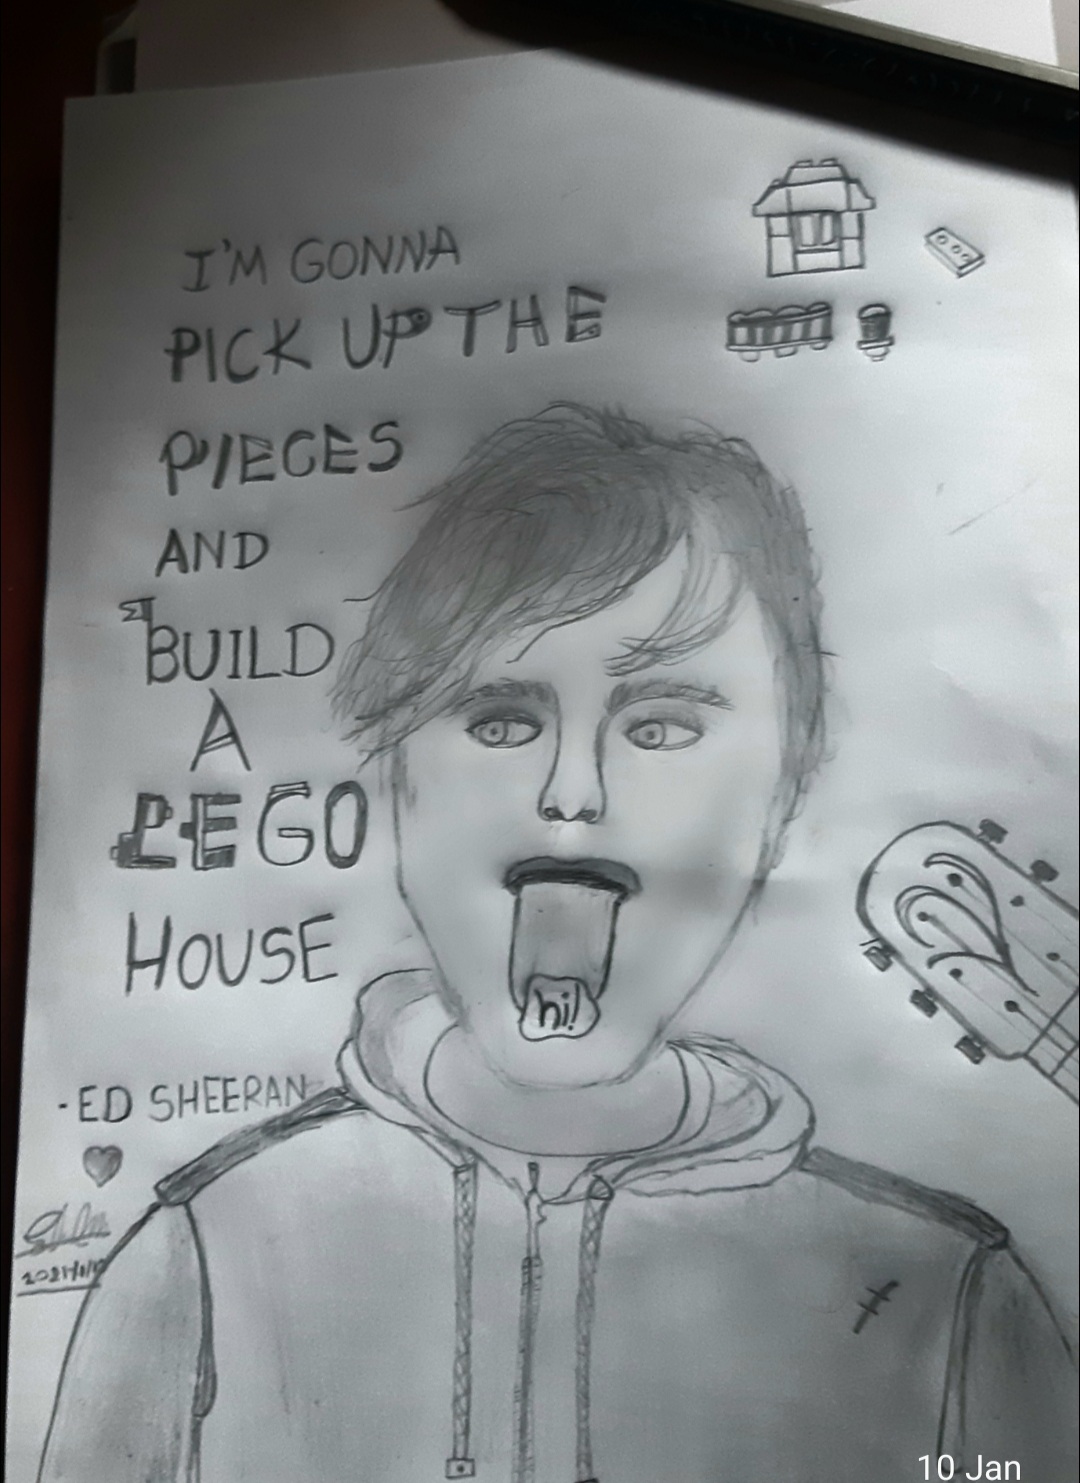 I'M GONNA
PICK UP THE
PIECES
AND
BUILD
A
LEGO
HOUSE
-ED SHEERAN
hi!
10 Jan